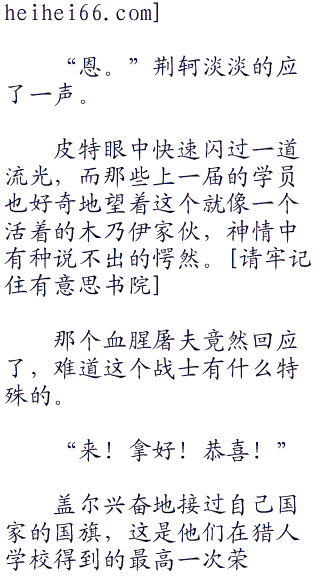 heihei66.com]
“恩。”荆轲淡淡的应
了一声。
皮特眼中快速闪过一道
流光，而那些上一届的学员
也好奇地望着这个就像一个
活着的木乃伊家伙，神情中
有种说不出的愕然。[请牢记
住有意思书院]
那个血腥屠夫竟然回应
了，难道这个战士有什么特
殊的。
“来！拿好！恭喜！”
盖尔兴奋地接过自己国
家的国旗，这是他们在猎人
学校得到的最高一次荣